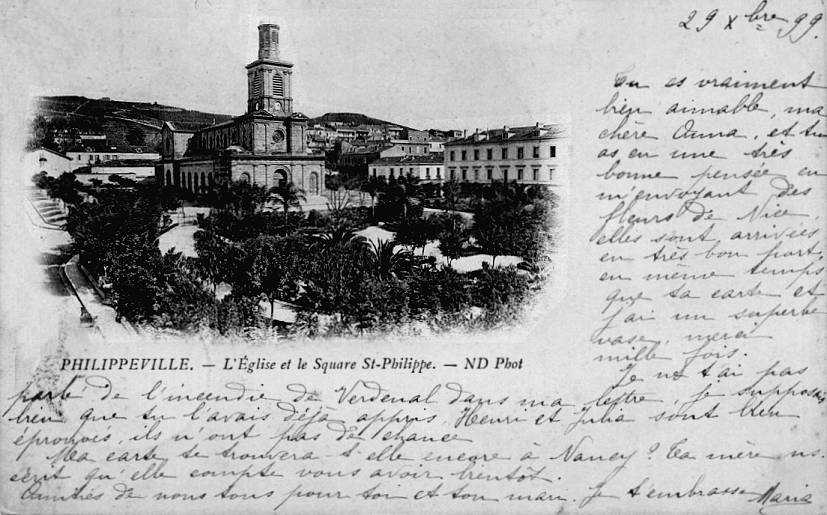 29 Xbre 99.
Tu es vraiment
bien aimable, ma
chère Anna, et tu
as eu une très
bonne pensée en
m'envoyant des
fleurs de Nice,
elles sont arrivées
en très bon port,
en même temps
que ta carte et
j'ai un superbe
vase, merci
mille fois.
Je ne t'ai pas
PHILIPPEVILLE. — L'Église et le Square St-Philippe. — ND Phot
parlé de l'incendie de Verdenal dans ma lettre, je supposais
bien que tu l'avais déjà appris, Henri et Julia sont bien
éprouvés, ils n'ont pas de chance
Ma carte te trouvera-t-elle encore à Nancy? Ta mère ns.
écrit qu'elle compte vous avoir bientôt.
Amitiés de nous tous pour toi et ton mari. Je t'embrasse Maria